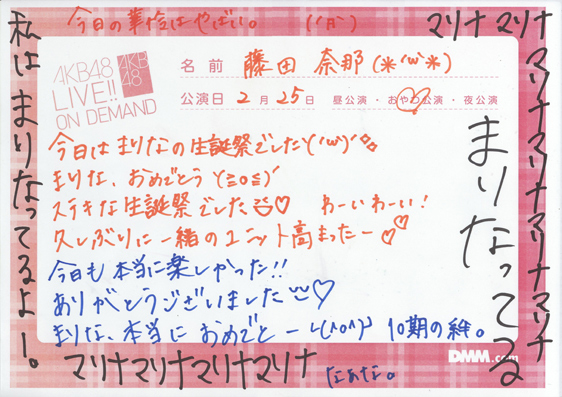 今日の華怜はやばい。
マリナ マリナ
AKB48
LIVE!!
ON DEMAND
AKB
48
名前 藤田 奈那(*'ω'*)
公演日 2月25日 昼公演・おやつ公演・夜公演
今日はまりなの生誕祭でした\('ω')/
まりな、おめでとう\(≧o≦)/
ステキな生誕祭でした♡ わーいわーい!
久しぶりに一緒のユニット高まったー♡♡
今日も本当に楽しかった!!
ありがとうございました♡
まりな、本当におめでとー\(^o^)/ 10期の絆。
なぁな。
DMM.com
私はまりなってるよー。
マリナマリナマリナマリナ
マリナマリナマリナマリナ
まりなってる